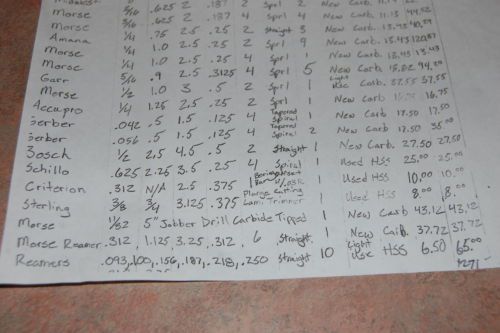 Morse 3/16 .625 2 .187 2 Sprl 2 New Carb. 11.
Morse 3/16 .625 2 .187 4 Sprl 4 New Carb. 11.13 44.52
Amana 1/4 .75 2.5 .25 2 Straight 3 New Carb.
Morse 1/4 1.0 2.5 .25 2 Sprl 9 New Carb.
Morse 1/4 1.0 2.5 .25 4 Sprl 1 New Carb. 13.43 13.43
Garr 5/16 .9 2.5 .3125 4 Sprl 5 New Carb.
Morse 1/2 1.0 3 .5 2 Sprl 1 Light Use Carb. 37.55 37.55
Accupro 1/4 1.25 2.5 .25 2 Sprl 1 New Carb. 16.75
Gerber .042 .5 1.5 .125 4 Tapered Spiral 1 New Carb. 17.50 17.50
Gerber .056 .5 1.5 .125 4 Tapered Spiral 2 New Carb. 17.50 35.00
Bosch 1/2 2.5 4.5 .5 2 Straight 1 New Carb. 27.50 27.50
Schillo .625 2.25 3.5 .25 4 Spiral 1 Used HSS 25.00 25.00
Criterion .312 N/A 2.5 .375 1 Boring Bar 1 Used HSS 10.00 10.00
Sterling 3/8 3/4 3.125 .375 Plunge Cutting Lam. Trimmer 1 Used HSS 8.00 8.00
Morse 11/32 5" Jobber Drill Carbide Tipped 1 New Carb 43.12 43.12
Morse Reamer .312, 1.125, 3.25, .312, 6 Straight 1 New Carb. 37.72 37.72
Reamers .093, .100, .156, .187, .218, .250 Straight 10 Light Use HSS 6.50 65.00